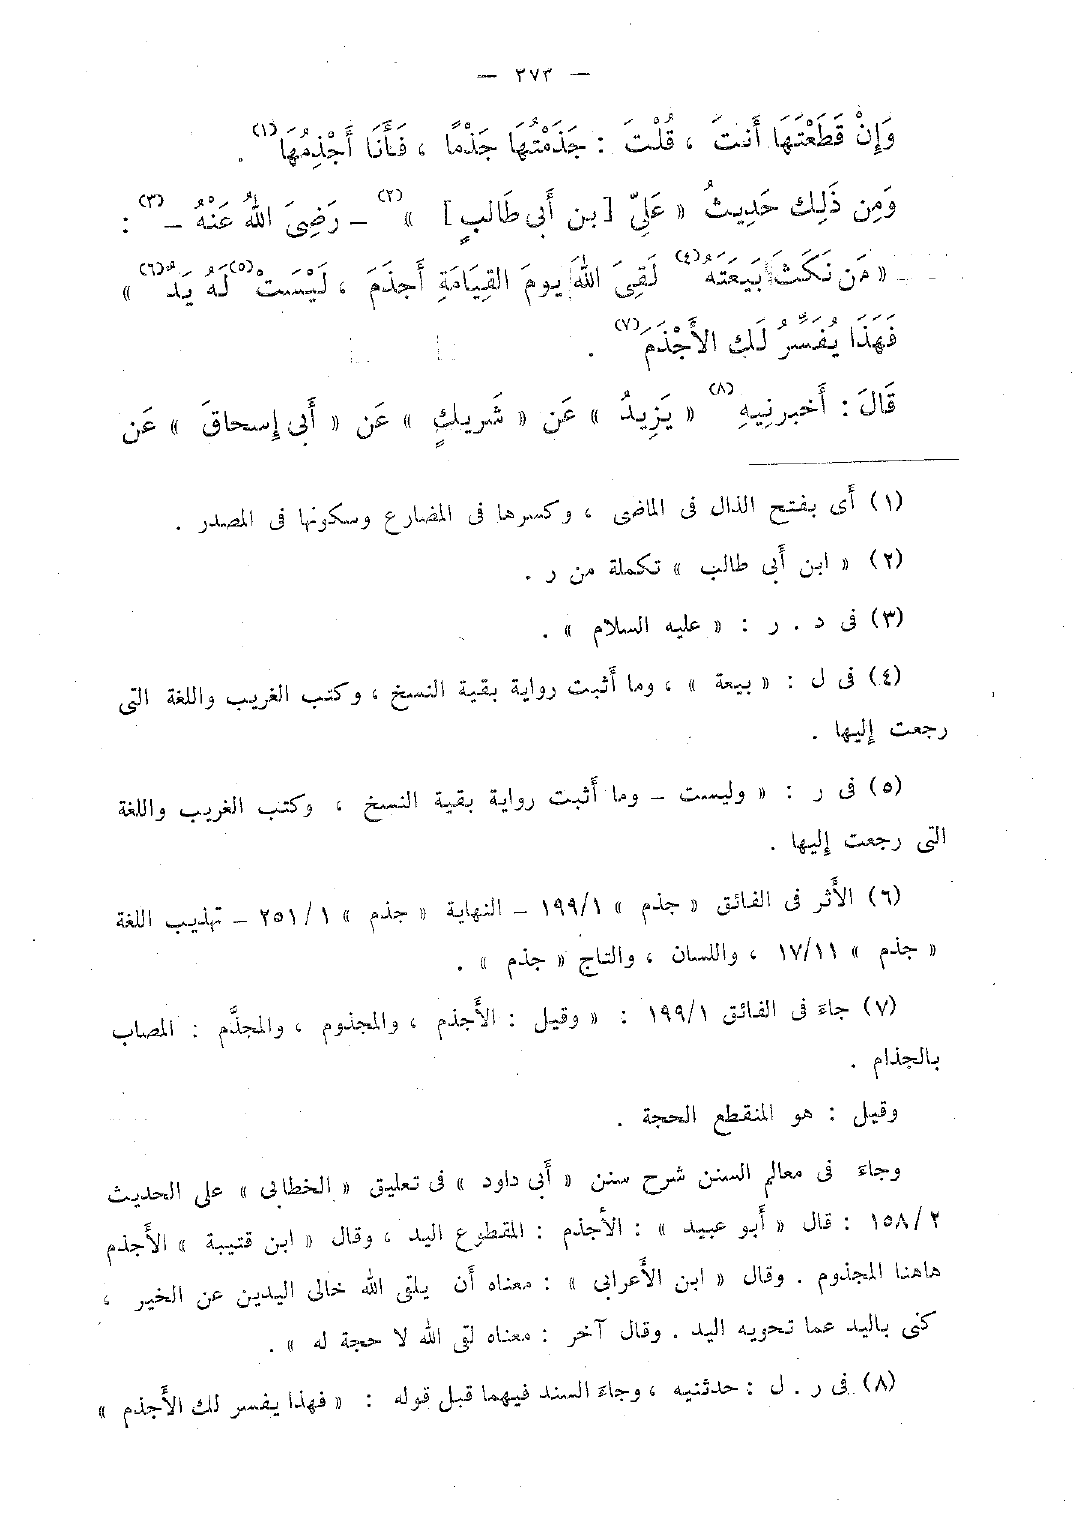 — ٢٧٣ —
وَإِنْ قَطَعْتَهَا أَنتَ ، قُلْتَ : جَذَمْتُهَا جَذْمًا ، فَأَنَا أَجْذِمُهَا(١) .
وَمِن ذَلِك حَدِيثُ « عَلِيّ [ بن أَبى طَالبٍ ] »(٢) – رَضِىَ اللهُ عَنْهُ –(٣) :
« مَن نَكَثَ بَيعَتَهُ(٤) لَقِىَ اللهَ يومَ القِيَامَةِ أَجذَمَ ، لَيْسَت(٥) لَهُ يَدٌ(٦) »
فَهَذَا يُفَسِّرُ لَك الأَجْذَمَ(٧) .
قَالَ : أَخبرنِيهِ(٨) « يَزِيدُ » عَن « شَريكٍ » عَن « أَبى إسحاقَ » عَن
(١) أَى بفتح الذال فى الماضى ، وكسرها فى المضارع وسكونها فى المصدر .
(٢) « ابن أَبى طالب » تكملة من ر .
(٣) فى د . ر : « عليه السلام » .
(٤) فى ل : « بيعة » ، وما أَثبت رواية بقية النسخ ، وكتب الغريب واللغة التى
رجعت إليها .
(٥) فى ر : « وليست – وما أَثبت رواية بقية النسخ ، وكتب الغريب واللغة
التى رجعت إليها .
(٦) الأَثر فى الفائق « جذم » ١٩٩/١ – النهاية « جذم » ٢٥١/١ – تهذيب اللغة
« جذم » ١٧/١١ ، واللسان ، والتاج « جذم » .
(٧) جاءَ فى الفائق ١٩٩/١ : « وقيل : الأَجذم ، والمجذوم ، والمجذَّم : المصاب
بالجذام .
وقيل : هو المنقطع الحجة .
وجاءَ فى معالم السنن شرح سنن « أَبى داود » فى تعليق « الخطابى » على الحديث
١٥٨/٢ : قال « أَبو عبيد » : الأَجذم : المقطوع اليد ، وقال « ابن قتيبة » الأَجذم
هاهنا المجذوم . وقال « ابن الأَعرابى » : معناه أَن يلقى الله خالى اليدين عن الخير ،
كنى باليد عما تحويه اليد . وقال آخر : معناه لقى الله لا حجة له » .
(٨) فى ر . ل : حدثنيه ، وجاءَ السند فيهما قبل قوله : « فهذا يفسر لك الأَجذم »